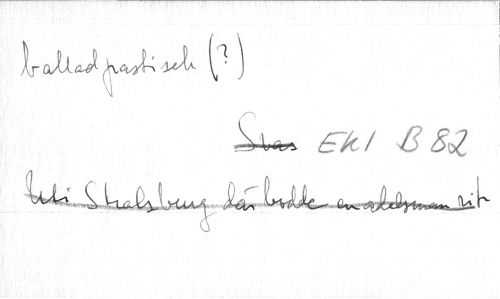 balladpastisch (?)
Svas EKI B 82
Uti Stralsburg där bodde en adelsman rik